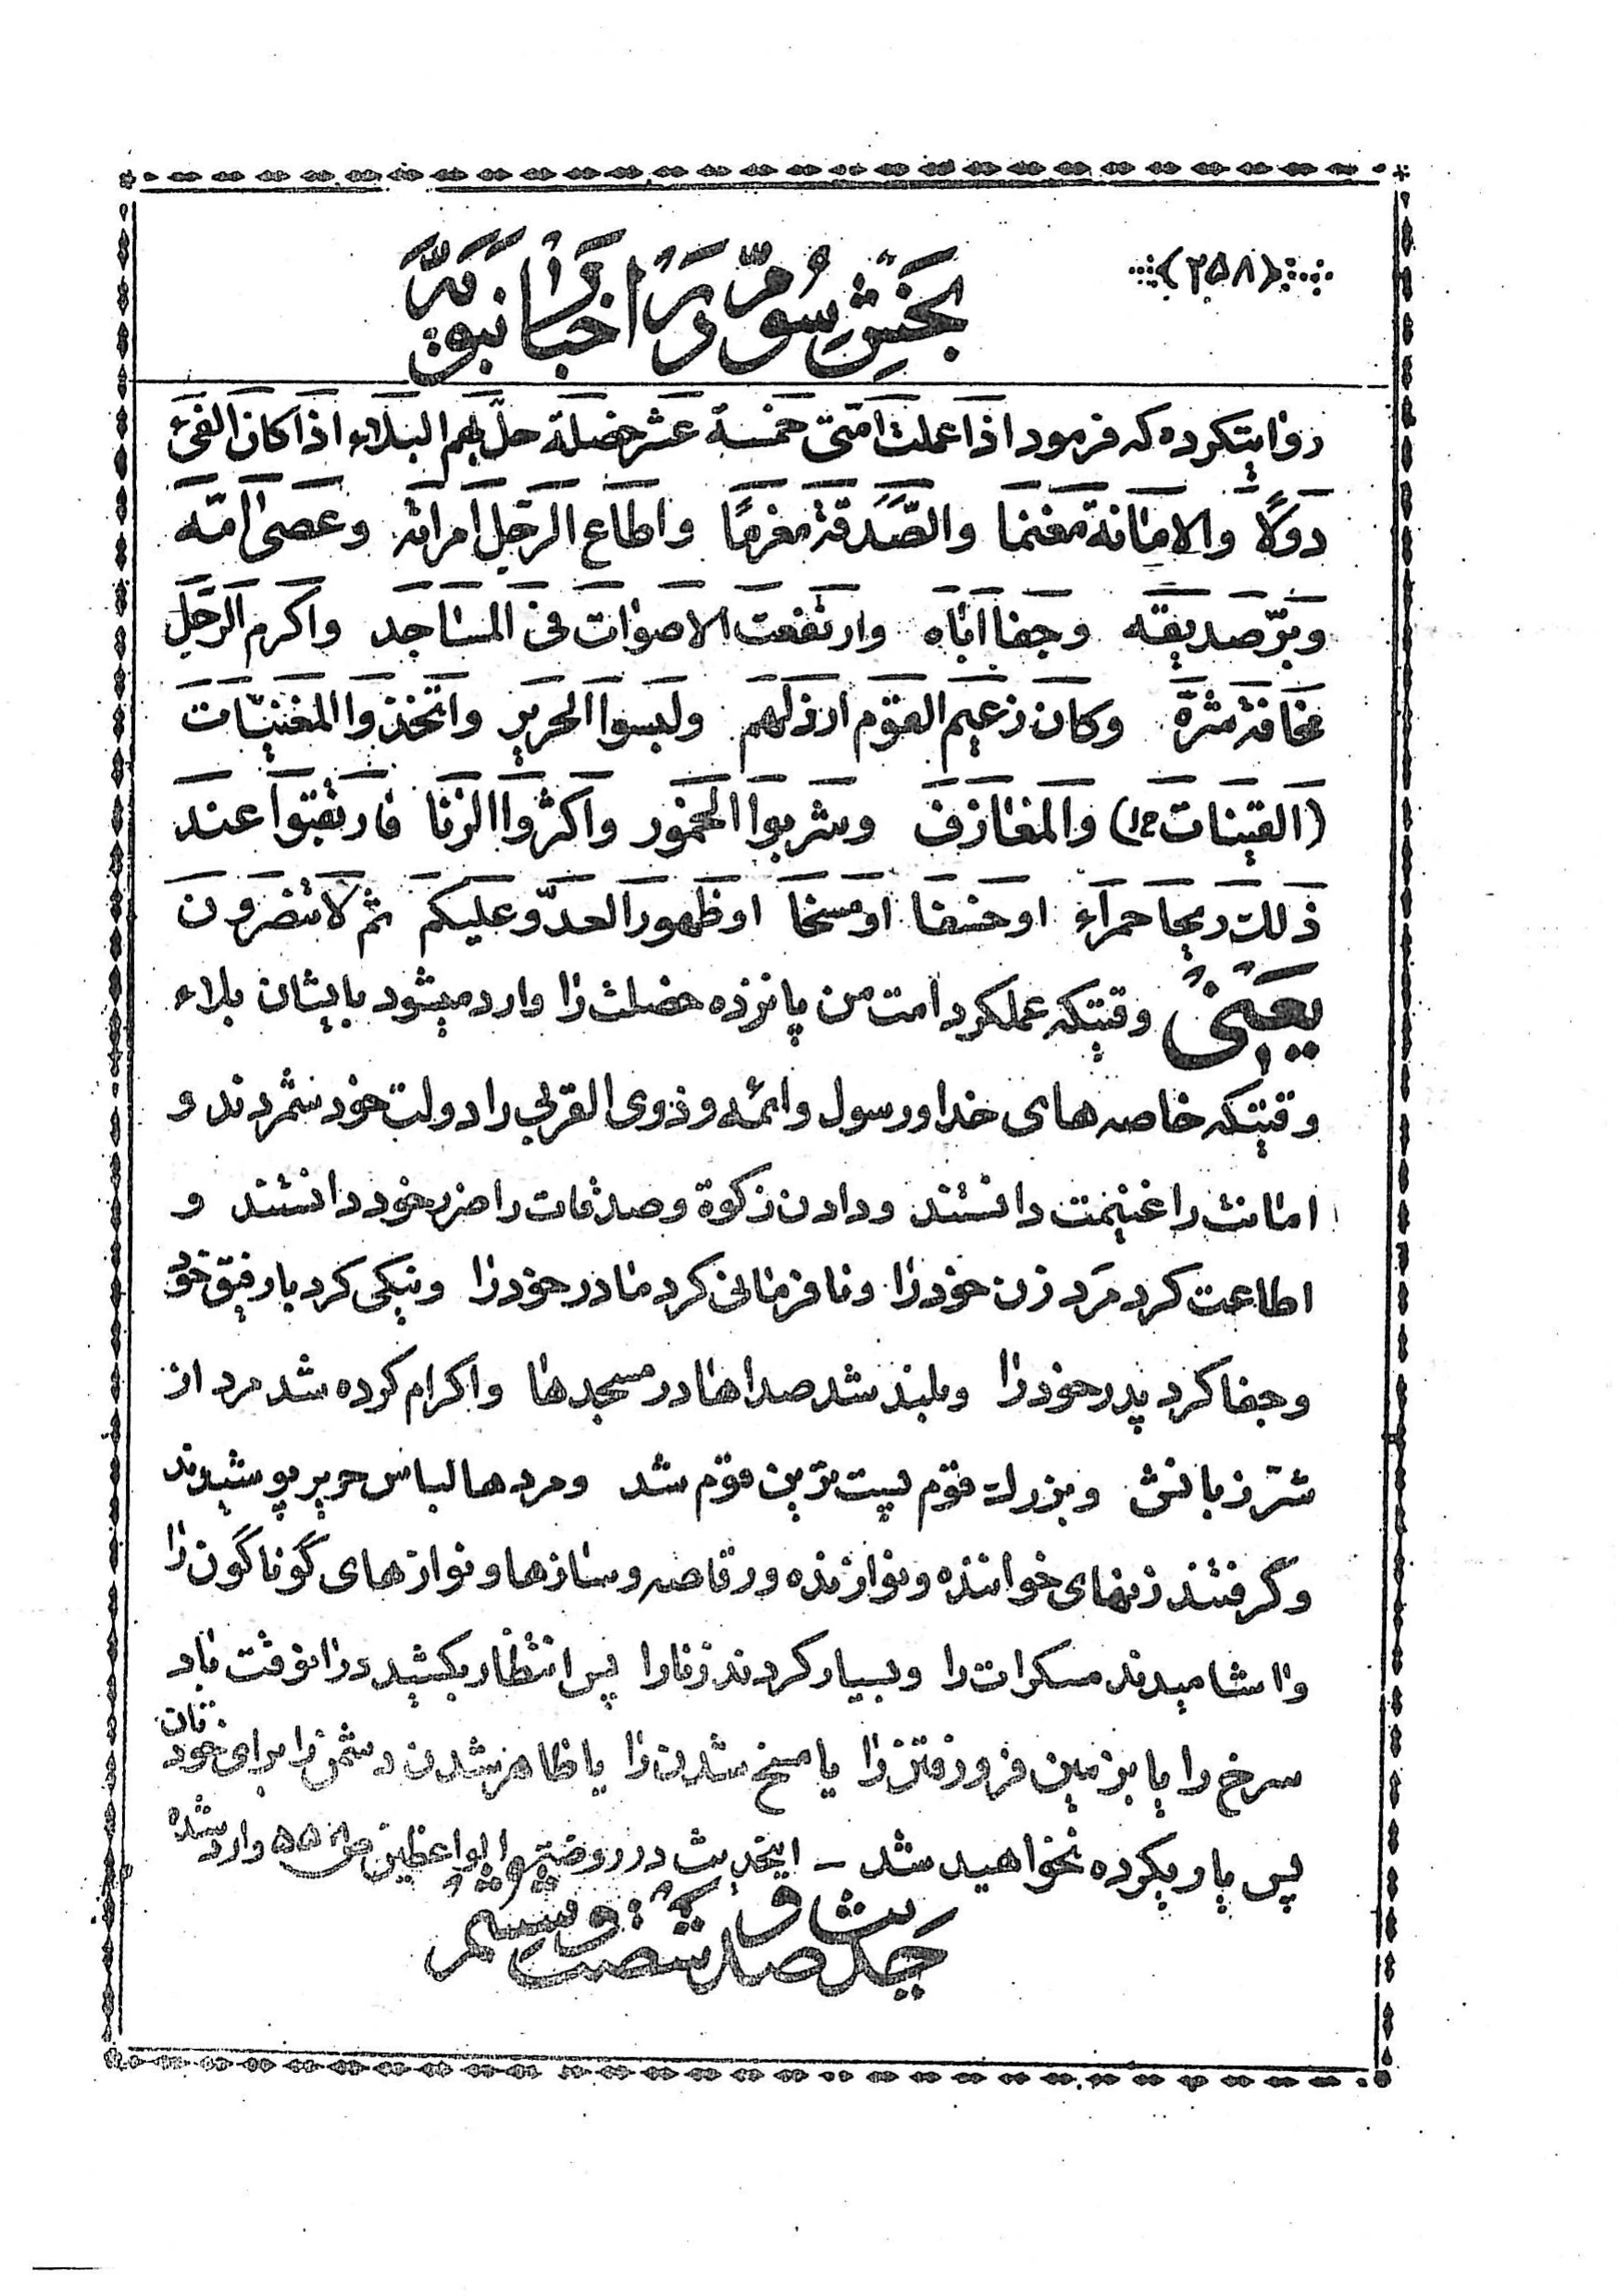 ﴿۲۵۸﴾
بخش سوم در اخبار نبویه
روایتکرده که فرمود اذا عملت امتی خمسة عشر خصلة حل بهم البلاء اذا کان الفیء
دولاً والامانة مغنما والصدقة مغرمًا واطاع الرجل امراته وعصی امّه
وبرّ صدیقه وجفا اباه وارتفعت الاصوات فی المساجد واکرم الرجل
مخافة شرّه وکان زعیم القوم ارذلهم ولبسوا الحریر واتخذوا المغنیات
(القینات خ‌ل) والمعازف وشربوا الخمور واکثروا الزنا فارتقبوا عند
ذلک ریحا حمراء او خسفا او مسخا او ظهور العدو علیکم ثم لا تنصرون
یعنی وقتیکه عملکرد امت من پانزده خصلت را وارد میشود بایشان بلاء
وقتیکه خاصه های خدا ورسول وائمه وذوی القربی را دولت خود شمردند و
امانت را غنیمت دانستند ودادن زکوة وصدقات را ضرر خود دانستند و
اطاعت کرد مرد زن خود را ونافرمانی کرد مادر خود را ونیکی کرد با رفیق خود
وجفا کرد پدر خود را وبلند شد صداها در مسجدها واکرام کرده شد مرد از
شر زبانش وبزرك قوم پست ترین قوم شد ومردها لباس حریر پوشیدند
وگرفتند زنهای خواننده ونوازنده ورقاصه وسازها ونوازهای گوناگون را
واشامیدند مسکرات را وبسیار کردند زنا را پس انتظار بکشید در انوقت باد
سرخ را یا بزمین فرورفتن را یا مسخ شدن را یا ظاهر شدن دشمن را برای خودتان
پس یاری کرده نخواهید شد ــ اینحدیث در روضة الواعظین ص ۵۵۰ وارد شده
حدیث صد و شصت و ششم